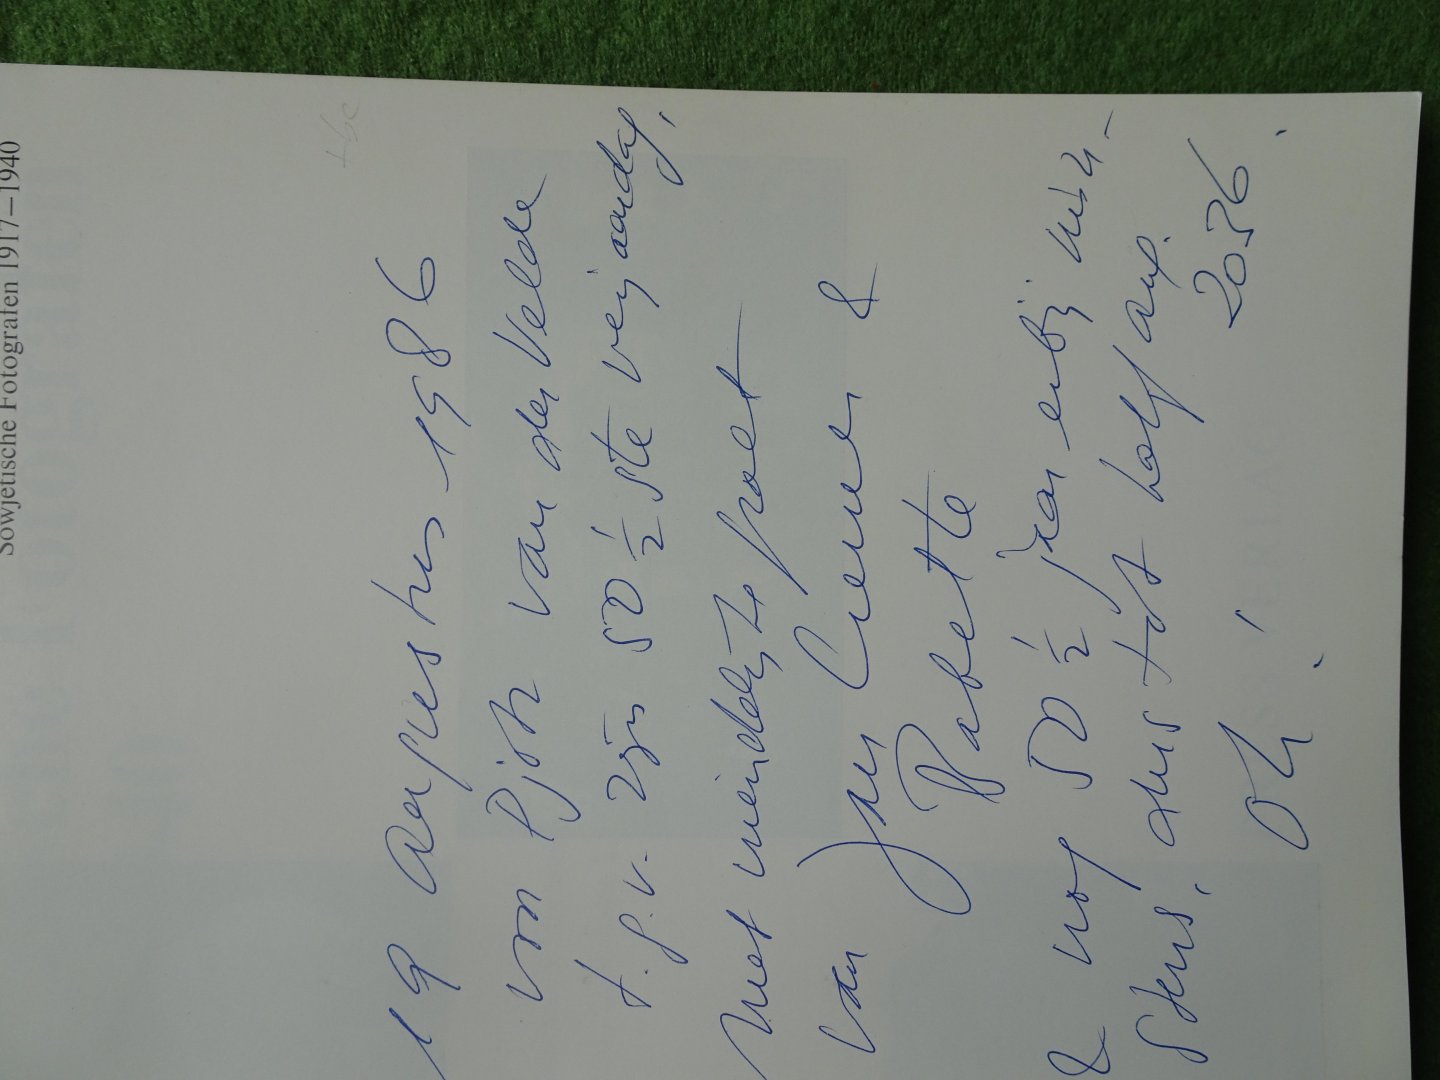 Sowjetische Fotografen 1917–1940
19 Augustus 1986
voor Pjotr van der Velde
t.g.v. zijn 50 ½ ste verjaardag,
Met vriendelijke groet
van Jan Cremer &
Babette
& nog 50 ½ jaar erbij min-
stens, dus tot half aug.
2036.